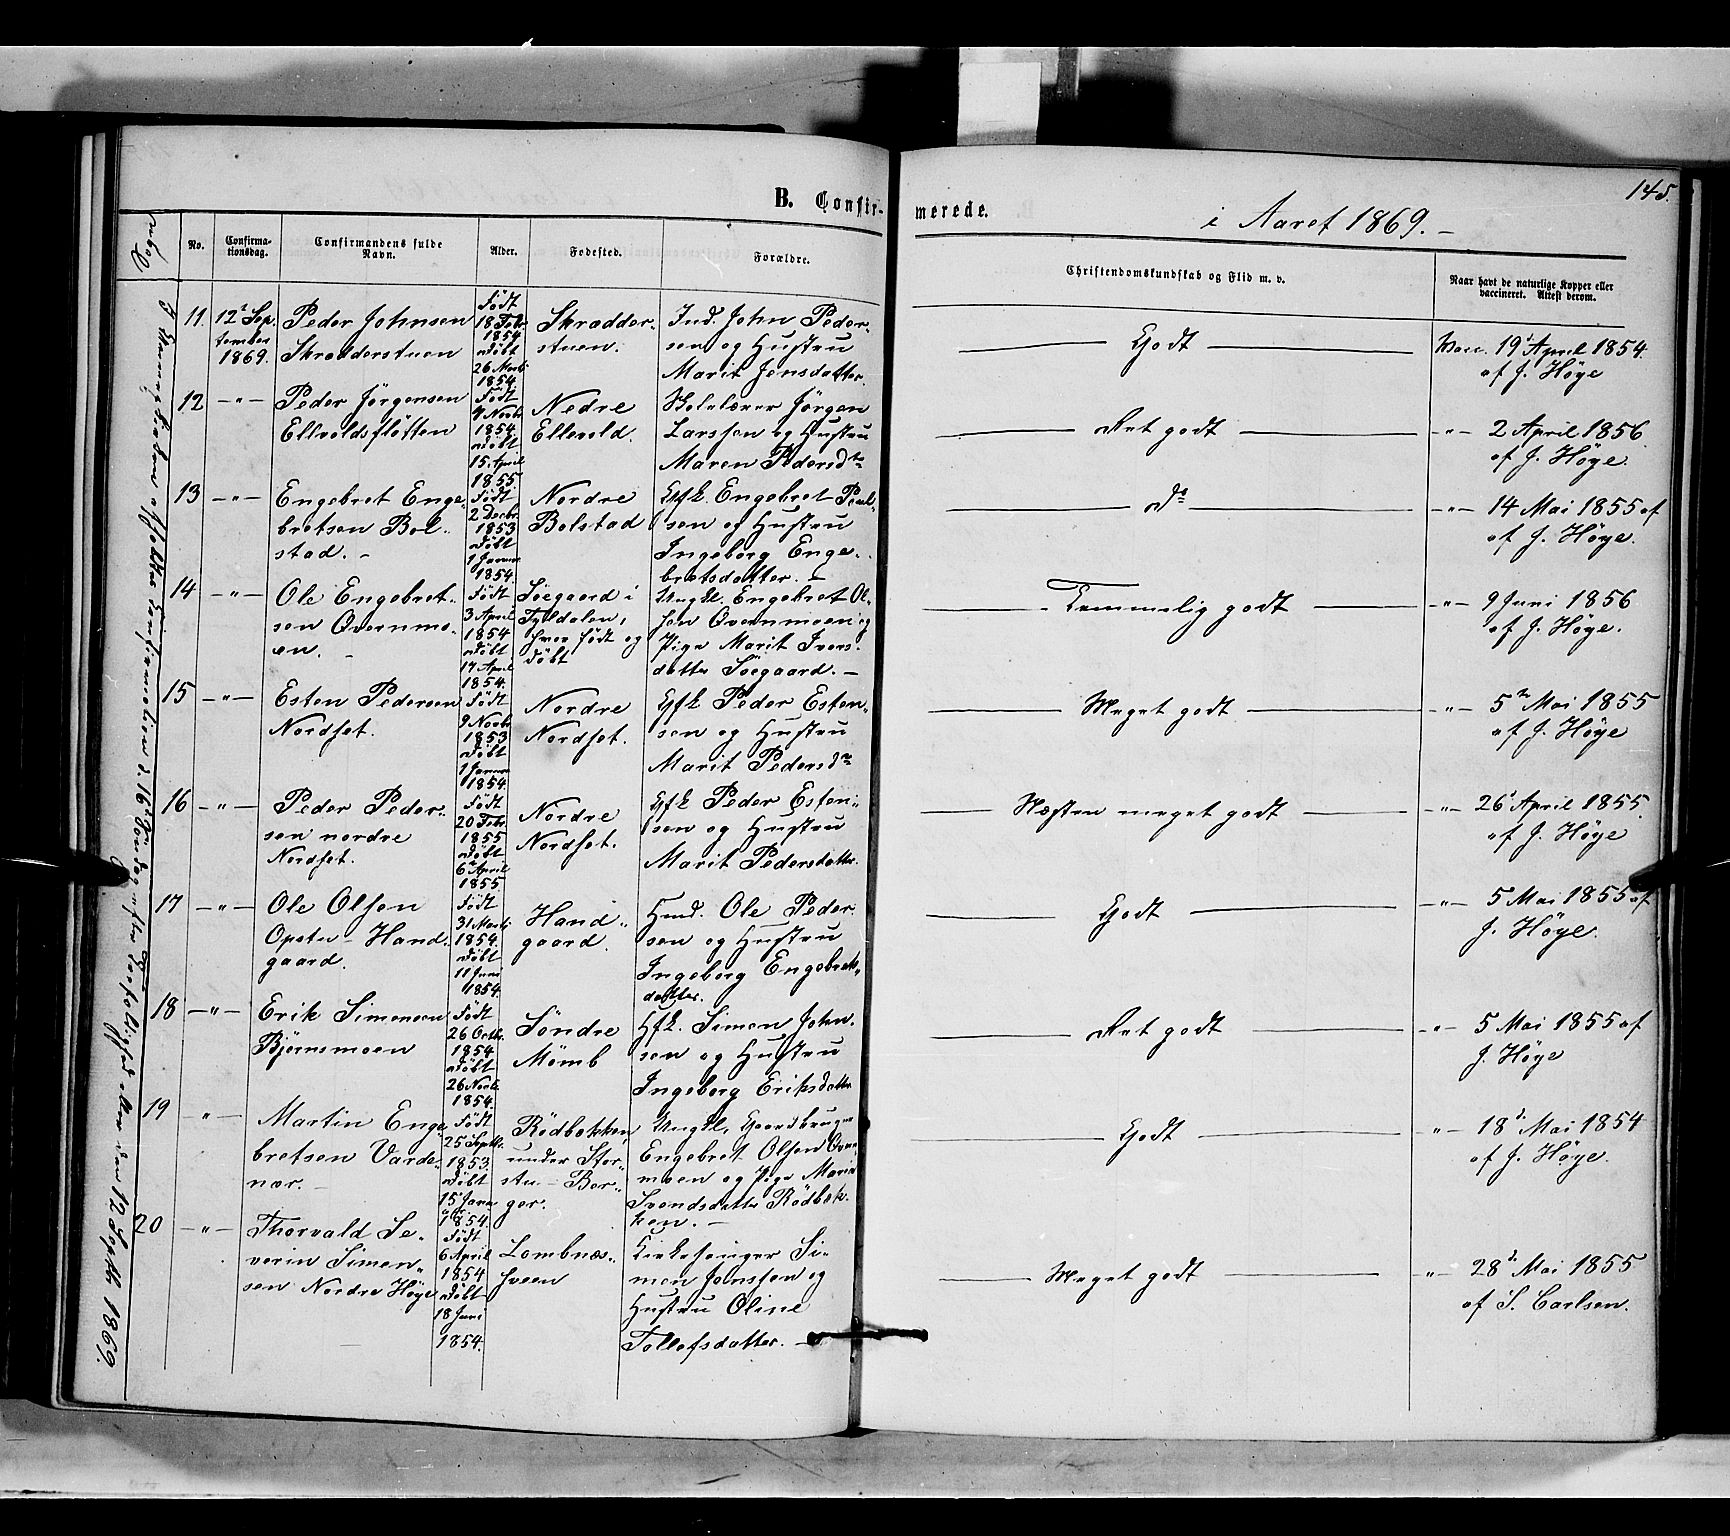 145.
B. Confir-
merede.
i Aaret 1869.-
Sogn
No.
Confirma-
tionsdag.
Confirmandens fulde
Navn.
Alder.
Fødested.
Forældre.
Christendomskundskab og Flid m. v.
Naar havt de naturlige Kopper eller
vaccineret. Attest derom.
11.
12te Sep-
tember
1869.
Peder Johnsen
Skradderstuen
Født
18 Febr
1854
døbt
26 Marti
1854.
Skradder-
stuen.
Ind. John Peder-
sen og Hustru
Marit Jensdatter.
Godt
Vacc. 19 April 1854.
af J. Høye
12
-"-
Peder Jørgensen
Ellevoldsfløtten
Født
Novbr
1854.
døbt
15. April
1855.
Nedre
Ellevold.
Skolelærer Jørgen
Larssen og Hustru
Maren Pedersdtr
Ret godt
-"- 2 April 1856
af J. Høye.
13
-"-
Engebret Enge-
bretsen Bol-
stad. -
Født
2 Decbr.
1853
døbt
1 Januar
1854.
Nordre
Bolstad
Gfk. Engebret Paul-
sen og Hustru
Ingeborg Enge-
bretsdatter. -
Do
-"- 14 Mai 1855 af
af J. Høye.
14
-"-
Ole Engebret-
sen Overnmo-
en. -
Født
3 April
1854
døbt
17 April
1854.
Søegaard i
Tyldalen,
hvor født og
døbt
Ungkl. Engebret Ol-
sen Overnmoen og
Pige Marit Ivers-
datter Søegaard. -
Temmelig godt
-"- 9 Juni 1856
af J. Høye.
15
-"-
Esten Pedersen
Nordset.
Født
9 Novbr
1853
døbt
1 Januar
1854.
Nordre
Nordset.
Gfk Peder Esten-
sen og Hustru
Marit Pedersdtr
Meget godt
-"- 5te Mai 1855
af J. Høye
16
-"-
Peder Peder-
sen nordre
Nordset.
Født
20 Febr
1855
døbt
6te April
1855.
Nordre
Nordset.
Gfk Peder Esten-
sen og Hustru
Marit Pedersdatter.
Næsten meget godt
-"- 26 April 1855.
af J. Høye
17
-"-
Ole Olsen
Opstu- Hand-
gaard.
Født
31 Marti
1854.
døbt
11 Juni
1854.
Hand-
gaard.
Hmd. Ole Peder-
sen og Hustru
Ingeborg Engebrets-
datter.
Godt
-"- 5 Mai 1855 af
J. Høye.
18
-"-
Erik Simensen
Bjørnsmoen
Født
26 Octbr.
1854.
døbt
26 Novb.
1854.
Søndre
Mømb
Gfk. Simen John-
sen og Hustru
Ingeborg Eriksdatter
Ret godt
-"- 5 Mai 1855 af
J. Høye
19
"
Martin Enge-
bretsen Varde-
nær. -
Født
25 Septbr.
1853.
døbt
15 Januar
1854.
Rødbekken
under Stor-
stu - Ber-
ger.
Ungkl. Gaardbruger
Engebret Olsen Overn-
moen og Pige Marit
Svendsdatter Rødbek-
ken. -
Godt
-"- 18de Mai 1854
af J. Høye.
20
-"-
Thorvald Se-
verin Simen-
sen Nordre Høye
Født
6 April
1854
døbt
18 Juni
1854.
Lombnæs-
hveen
Kirkesanger Si-
men Jonssen og
Hustru Oline
Tollefsdatter. -
Meget godt
-"- 28de Mai 1855
af S. Carlsen.
Søndag efter
den 12 Septbr 1869.